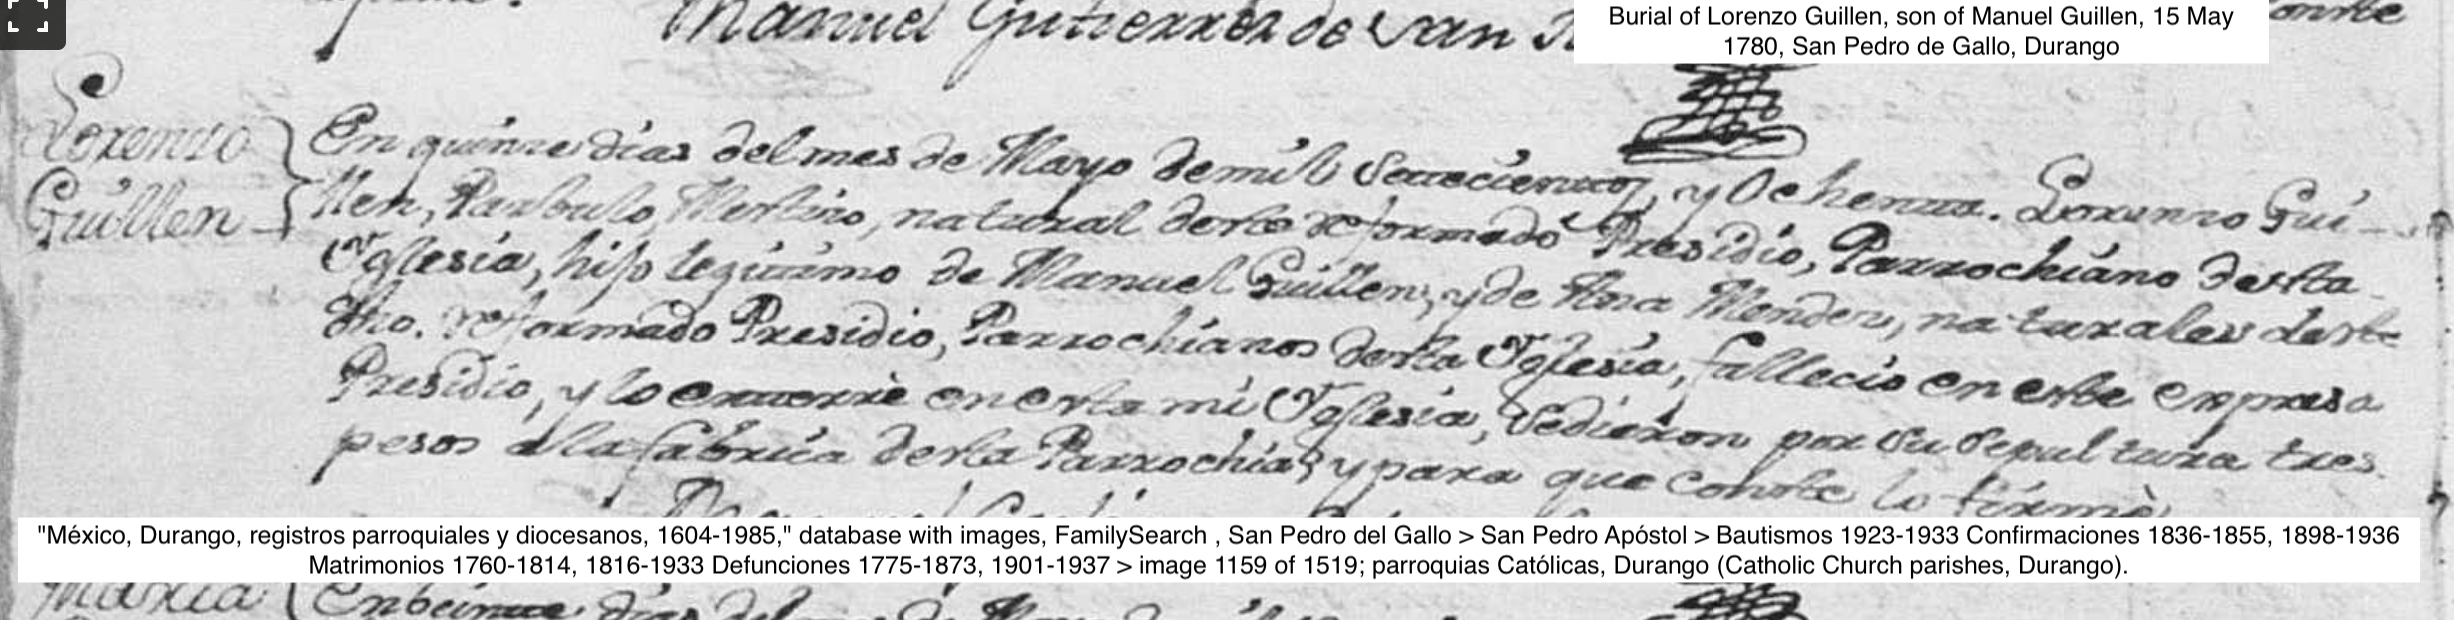 Manuel Gutierrez de San
Burial of Lorenzo Guillen, son of Manuel Guillen, 15 May
1780, San Pedro de Gallo, Durango
Lorenzo
Guillen
En quinze dias del mes de Mayo de mil Setecientos, y Ochenta. Lorenzo Gui-
llen, Parbulo, Mestizo, natural deste reformado Presidio, Parrochiano desta
Yglesia, hijo legitimo de Manuel Guillen, y de Ana Mendez, naturales deste
dho. reformado Presidio, Parrochianos desta Yglesia, fallecio en este expresado
Presidio, y lo enterrè en esta mi Yglesia, dedieron por su sepultura tres
pesos a la fabrica desta Parrochia, y para que conste lo firmè
"México, Durango, registros parroquiales y diocesanos, 1604-1985," database with images, FamilySearch , San Pedro del Gallo > San Pedro Apóstol > Bautismos 1923-1933 Confirmaciones 1836-1855, 1898-1936
Matrimonios 1760-1814, 1816-1933 Defunciones 1775-1873, 1901-1937 > image 1159 of 1519; parroquias Católicas, Durango (Catholic Church parishes, Durango).
Maria
dias del mes de Mayo